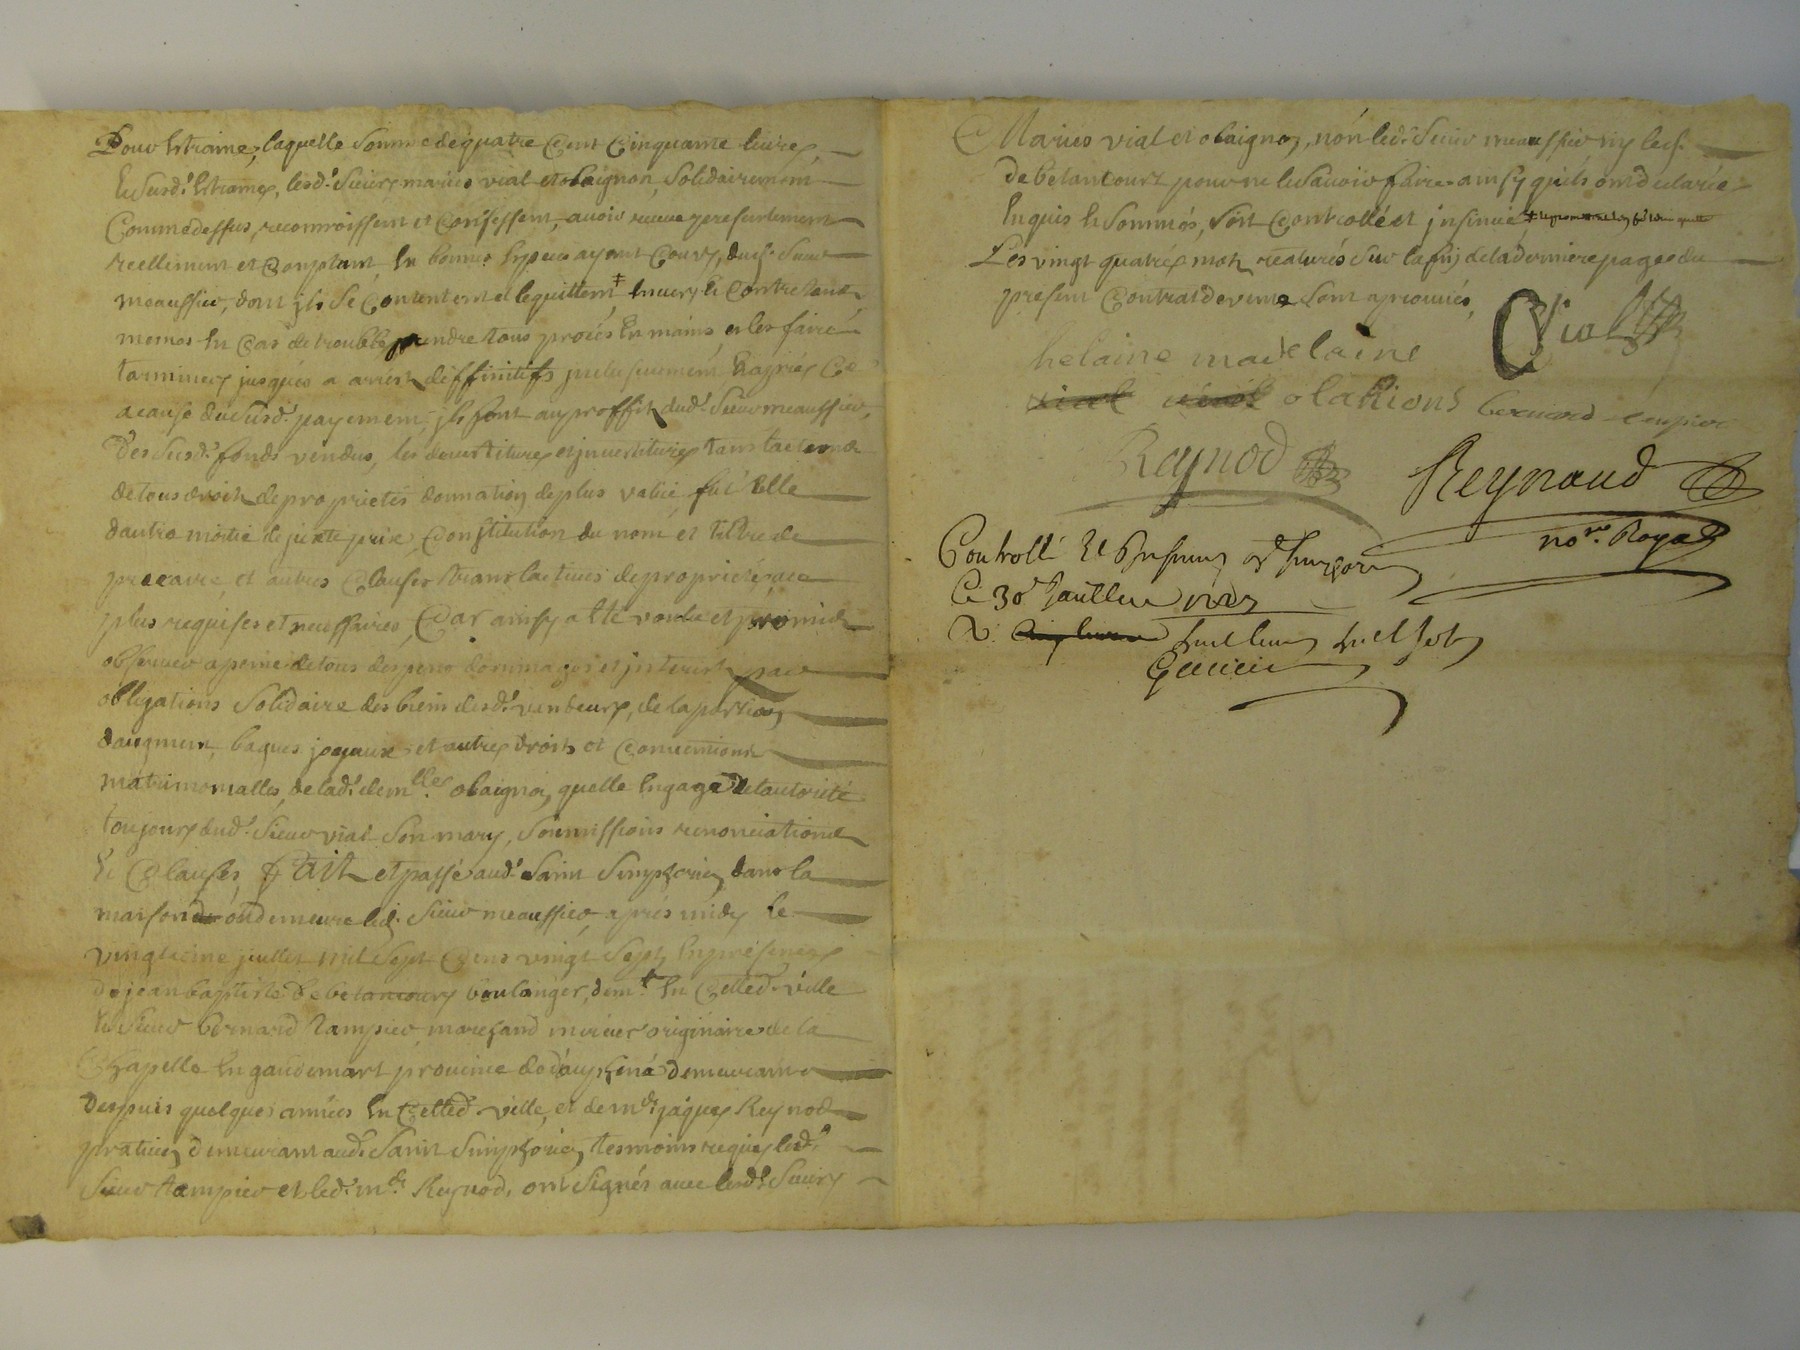 Pour Estraine, laquelle Somme de quatre Cent Cinquante livres,
Et Susd.t Estraines, lesd.ts Sieurs marius vial et obaignon, Solidairement
Comme dessus, reconnoissent et Confessent, avoir receue presentement
reellement et Comptant En bonnes Especes ayant Cours, dud.t Sieur
meaussier, dont ils Se Contentent et lequittent + Envers Et Contre tous
memes En Cas de trouble prendre tous procés En mains, et les faire
terminer jusques a arrest deffinitifs
acause du Susd.t payement, ils font au proffit dud.t Sieur meaussier,
Des Susd.ts fonds vendus, les devestitures et investitures translactions
de tous droits de proprietés donnation de plus value, fut Elle
dautre moitié de juste prix, Constitution du nom et tiltre de
precaire, et autres Clauses translactives de proprieté, aux
plus requises et necessaires, Car ainsy a Eté voulu et promis
observer a peine de tous despens dommages et interest, par
obligations Solidaire des biens desd.ts vendeurs, de la portion
daugment, bagues joyaux et autres droits et Conventions
matrimonialles, de lad.t dem.lle obaignon, quelle Engage de lautorité
toujours dud.t Sieur vial Son mary, Soumissions renonciations
Et Clauses, fait et passé aud.t Saint Simphorien dans la
maison ou demeure led.t Sieur meaussier aprés midy le
vingt juillet mil Sept Cens vingt Sept, En présences
de jean baptiste de betancourt boulanger, dem.t En Cetted. ville
du Sieur bernard Tampier marchand mercier originaire de la
Chapelle En gaudemart province de dauphiné demeurant
Despuis quelques années En Cetted. ville, et de m.e jaques Reynod
praticien demeurant aud.t Saint Simphorien, tesmoins requis, led.t
Sieur tampier et led.t m.e Reynod, ont Signés avec lesd.ts Sieurs
Marius vial et obaignon, non led.t Sieur meaussier ny led.t
de betancourt pour ne le Savoir faire ainsy quils ont declarés
Enquis Et Sommés, Soit Controllé et insinué
Les vingt quatres mots reaturés Sur la fin de la derniere page du
present Contrat de vente Sont aprouvés,
Vial
helaine madelaine
vial obanions bernard
Reynod Reynaud
no.re Royal
Controllé Et a St Simphorien
Ce 30e Juillet 1727